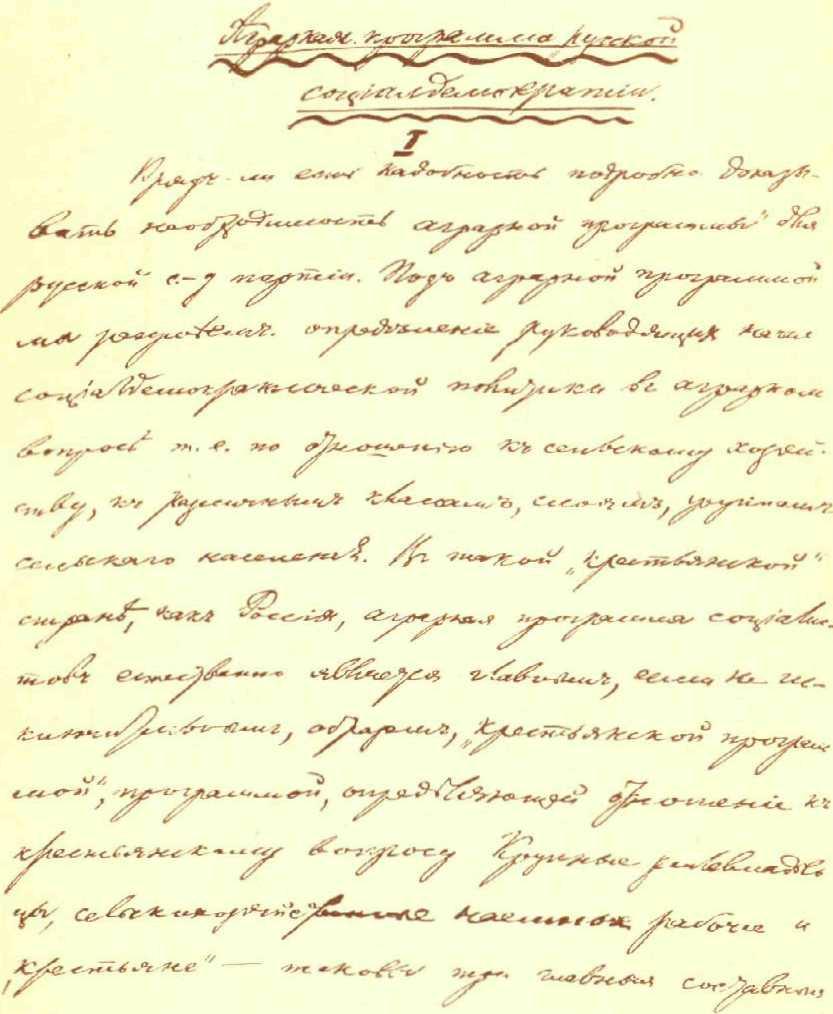 Аграрная программа русской
соціалдемократіи.
I
Врядъ-ли есть надобность подробно доказы-
вать необходимость „аграрной программы" для
русской с.-д партіи. Подъ аграрной программой
мы разумѣемъ опредѣленіе руководящихъ началъ
соціалдемократической политики въ аграрномъ
вопросѣ т. е. по отношенію къ сельскому хозяй-
ству, къ различнымъ классамъ, слоямъ, группамъ
сельскаго населенія. Въ такой „крестьянской"
странѣ, какъ Россія, аграрная программа соціалис-
товъ естественно является главнымъ, если не ис-
ключительнымъ, образомъ, „крестьянской програм-
мой", программой, опредѣляющей отношеніе къ
крестьянскому вопросу Крупные землевладѣль
цы, сельскихозяйственные наемные рабочіе и
„крестьяне" — таковы три главныя составныя